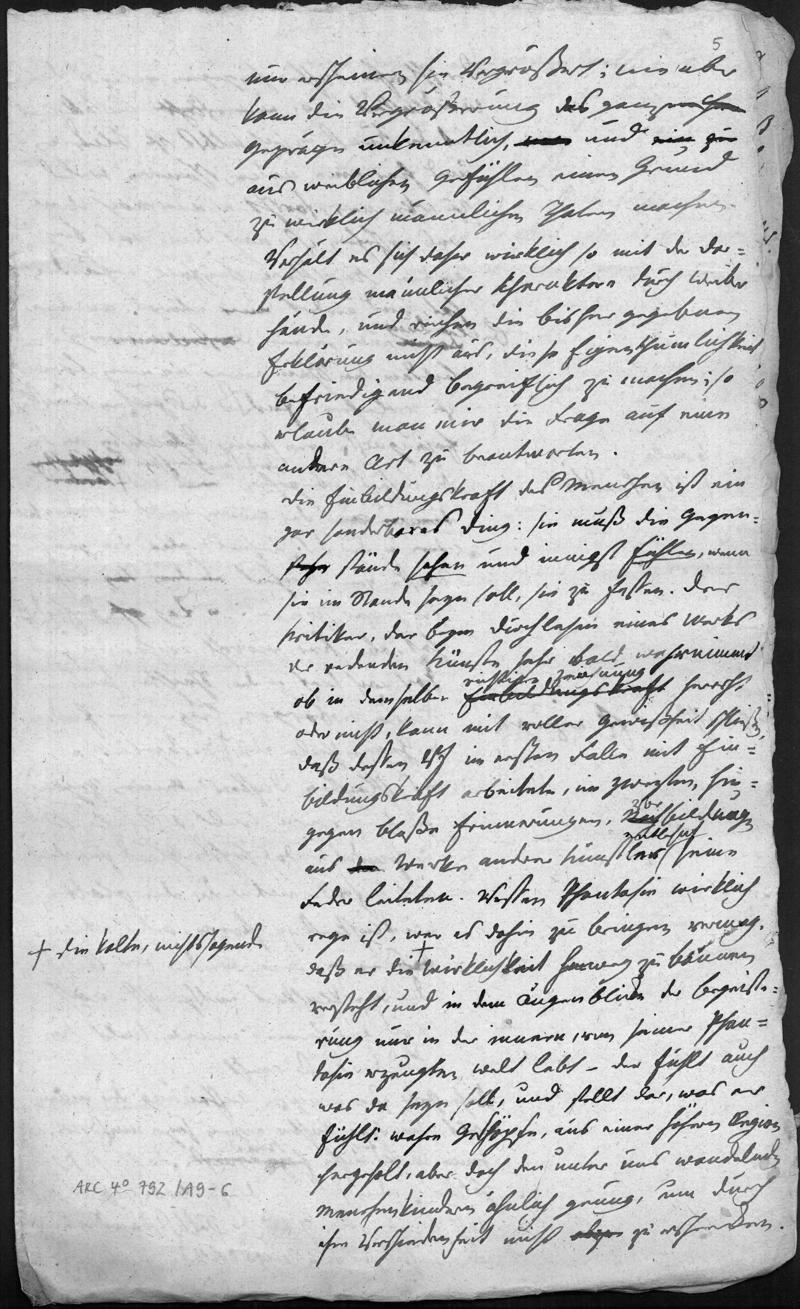 5
nur erscheinen sie vergrößert; nie aber
kann die Vergrößerung das ganze
Gepräge unkenntlich, und
aus weiblichen Gefühlen einen Grund
zu wirklich männlichen Thaten machen.
Verhält es sich daher wirklich so mit der Dar=
stellung männlicher Charaktere durch Weiber
hände, und reichen die bisher gegebenen
Erklärung nicht aus, diese Eigenthümlichkeit
befriedigend begreiflich zu machen; so
erlaube man mir die Frage auf eine
andere Art zu beantworten.
Die Einbildungskraft des Menschen ist ein
gar sonderbares Ding: sie muß die Gegen=
stände sehen und innigst fühlen, wenn
sie im Stande seyn soll, sie zu fassen. Der
Kritiker, der beym Durchlesen eines Werks
der redenden Künste sehr bald wahrnimmt
ob in demselben Einbildungskraft herrscht
oder nicht, kann mit voller Gewißheit schließen,
daß dessen im ersten Falle mit Ein=
bildungskraft arbeitete, im zweyten, hin=
gegen bloße Erinnerungen,
aus Werke anderer Künstler seine
Feder leiteten. Wessen Phantasie wirklich
rege ist, wer es dahin zu bringen vermag,
+ die kalte, nichtssagende
daß er die + Wirklichkeit hinweg zu bannen
versteht, und in dem Augenblicke der Begeiste=
rung nur in der innern, von seiner Phan=
tasie erzeugten Welt lebt – der fühlt auch
was da seyn soll, und stellt dar, was er
fühlt: wahre Geschöpfe, aus einer höhern Region
hergeholt, aber doch den unter uns wandelnden
Menschenkindern ähnlich genug, um durch
ihre Verschiedenheit nicht zu erschrecken.
ARC 4º 792 /A9-6